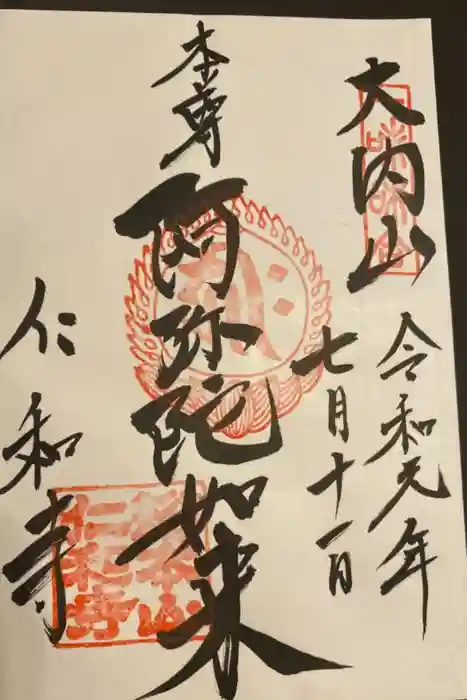 大内山
令和元年
七月十一日
本尊
阿弥陀如来
仁和寺